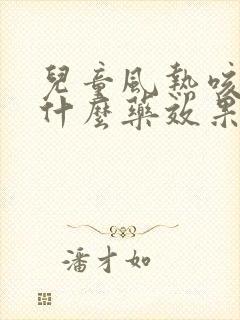 兒童風熱咳
什麼藥效果
潘才如